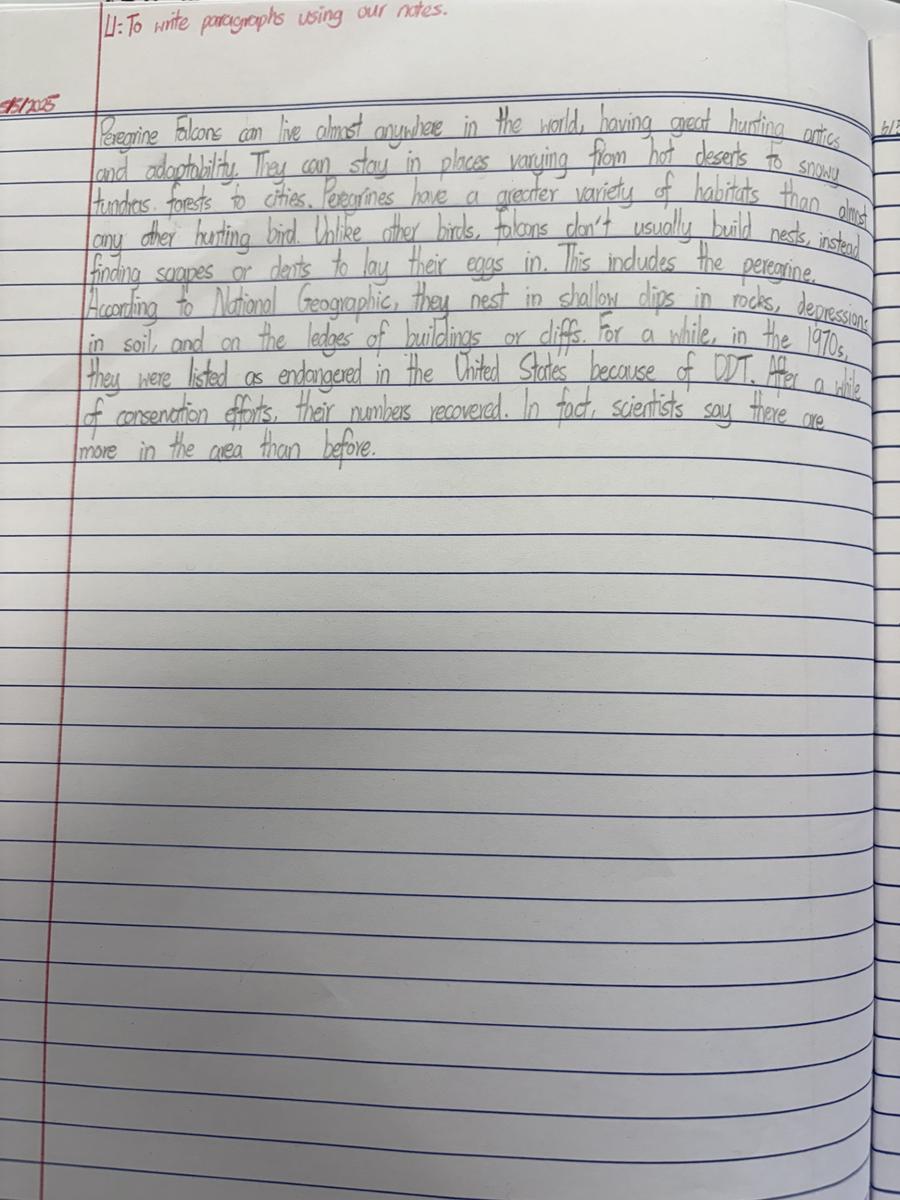 LI: To write paragraphs using our notes.
5/5/2025
Peregrine Falcons can live almost anywhere in the world, having great hunting antics
and adaptability. They can stay in places varying from hot deserts to snowy
tundras, forests to cities. Peregrines have a greater variety of habitats than almost
any other hunting bird. Unlike other birds, falcons don't usually build nests, instead
finding scapes or dents to lay their eggs in. This includes the peregrine.
According to National Geographic, they nest in shallow dips in rocks, depressions
in soil, and on the ledges of buildings or cliffs. For a while, in the 1970s,
they were listed as endangered in the United States because of DDT. After a while
of conservation efforts, their numbers recovered. In fact, scientists say there are
more in the area than before.